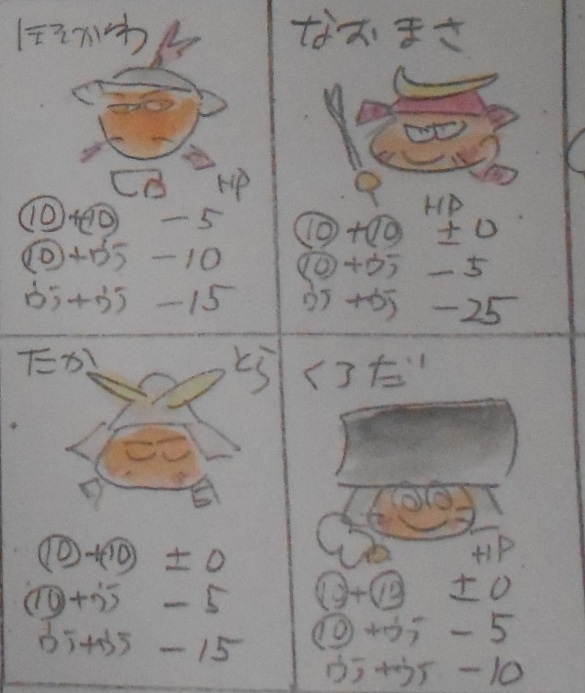 ほそかわ
HP
⑩+⑩ -5
⑩+ウラ -10
ウラ+ウラ -15
なおまさ
HP
⑩+⑩ ±0
⑩+ウラ -5
ウラ+ウラ -25
たか とら
⑩+⑩ ±0
⑩+ウラ -5
ウラ+ウラ -15
くろだ
HP
⑩+⑩ ±0
⑩+ウラ -5
ウラ+ウラ -10